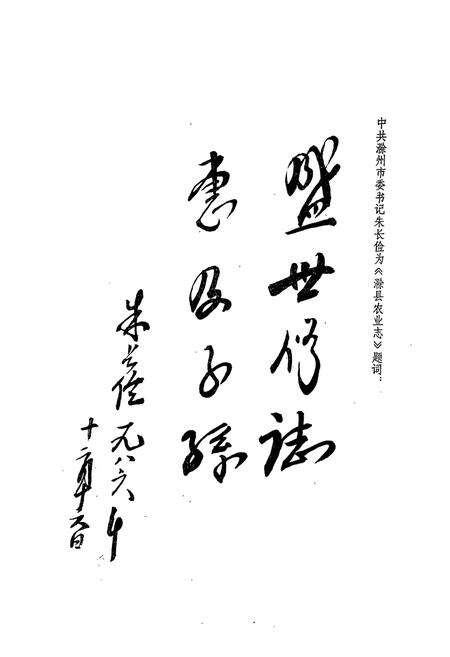 中共滁州市委书记朱长俭为《滁县农业志》题词：
盛世修誌
惠及子孫
朱长俭 一九八六年
十二月廿六日